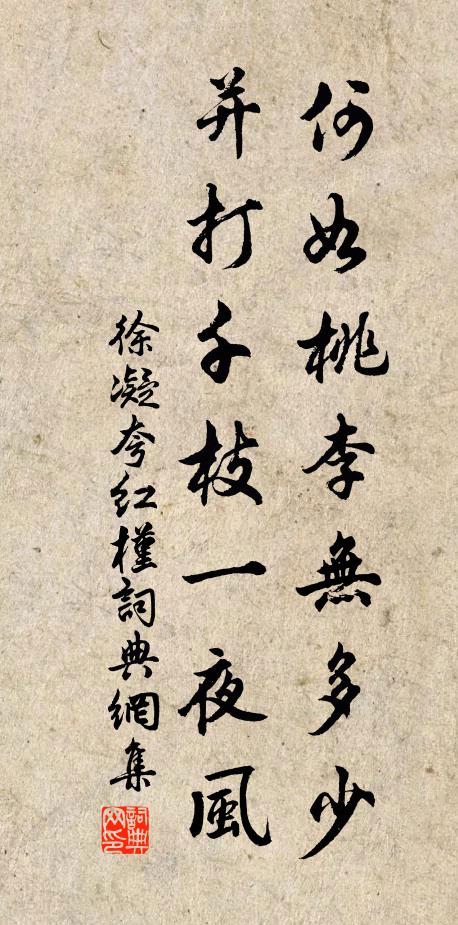 何如桃李無多少
并打千枝一夜風
徐凝夸紅槿詞典網集
詞典網印